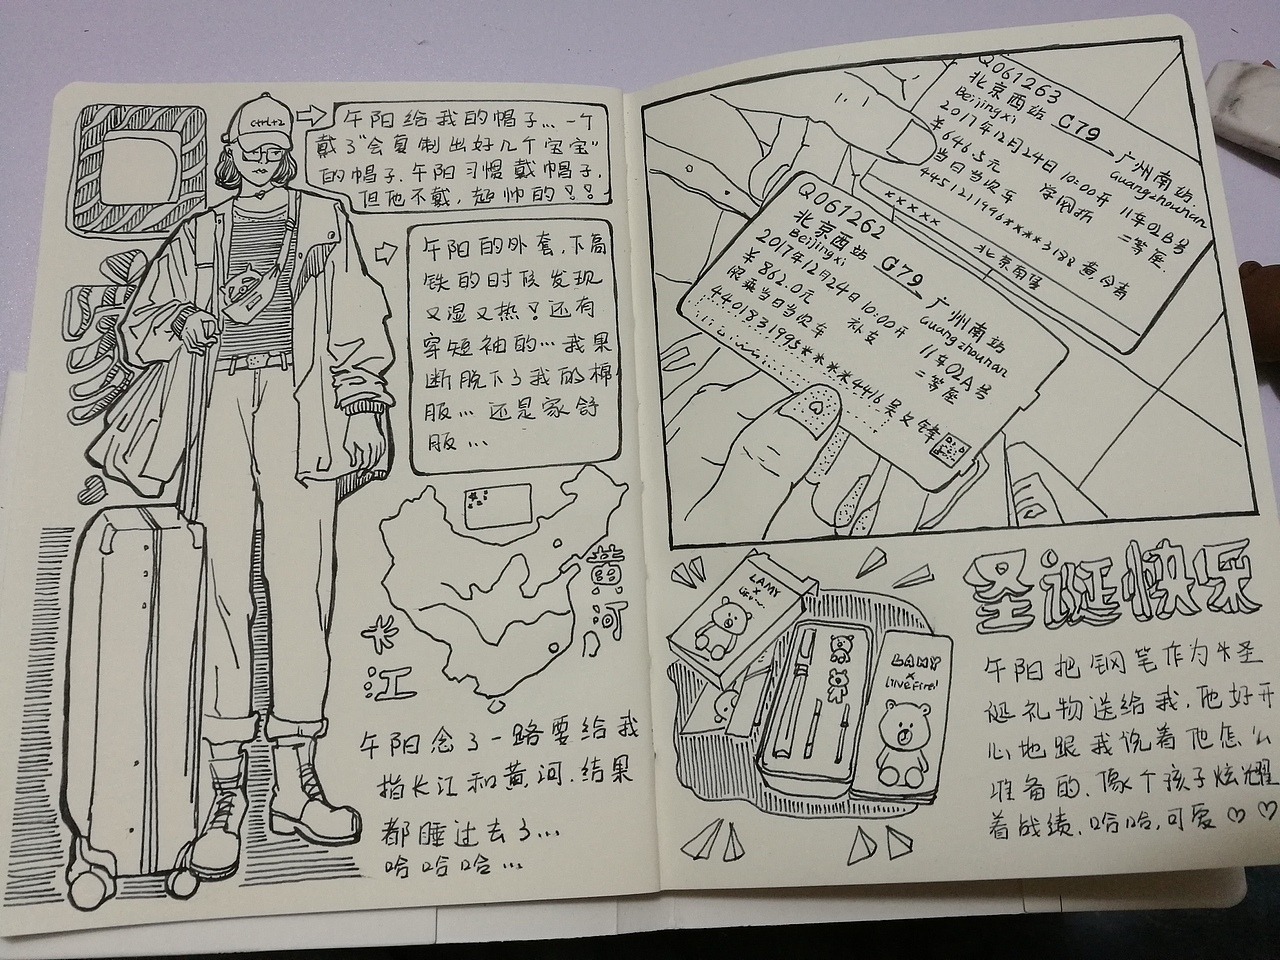 ctrl+z
午阳给我的帽子…一个
戴了"会复制出好几个宝宝"
的帽子.午阳习惯戴帽子,
但他不戴,超帅的!!
午阳的外套,下高
铁的时候发现
又湿又热!还有
穿短袖的…我果
断脱下了我的棉
服…还是家舒
服…
黄河
长江
午阳念了一路要给我
指长江和黄河.结果
都睡过去了…
哈哈哈…
Q061263
北京西站 G79 广州南站
Beijingxi Guangzhounan
2017年12月24日10:00开 11车02B号
¥646.5元 学 网折 二等座
当日当次车
4451211996****3188
×××××
北京南
Q061262
北京西站 G79 广州南站
Beijingxi Guangzhounan
2017年12月24日10:00开 11车02A号
¥862.0元 二等座
限乘当日当次车
4401831995****4416 吴文锋
LAMY
×
LAMY
×
livefine!
圣诞快乐
午阳把钢笔作为圣
诞礼物送给我.他好开
心地跟我说着他怎么
准备的.像个孩子炫耀
着战绩.哈哈,可爱♡♡